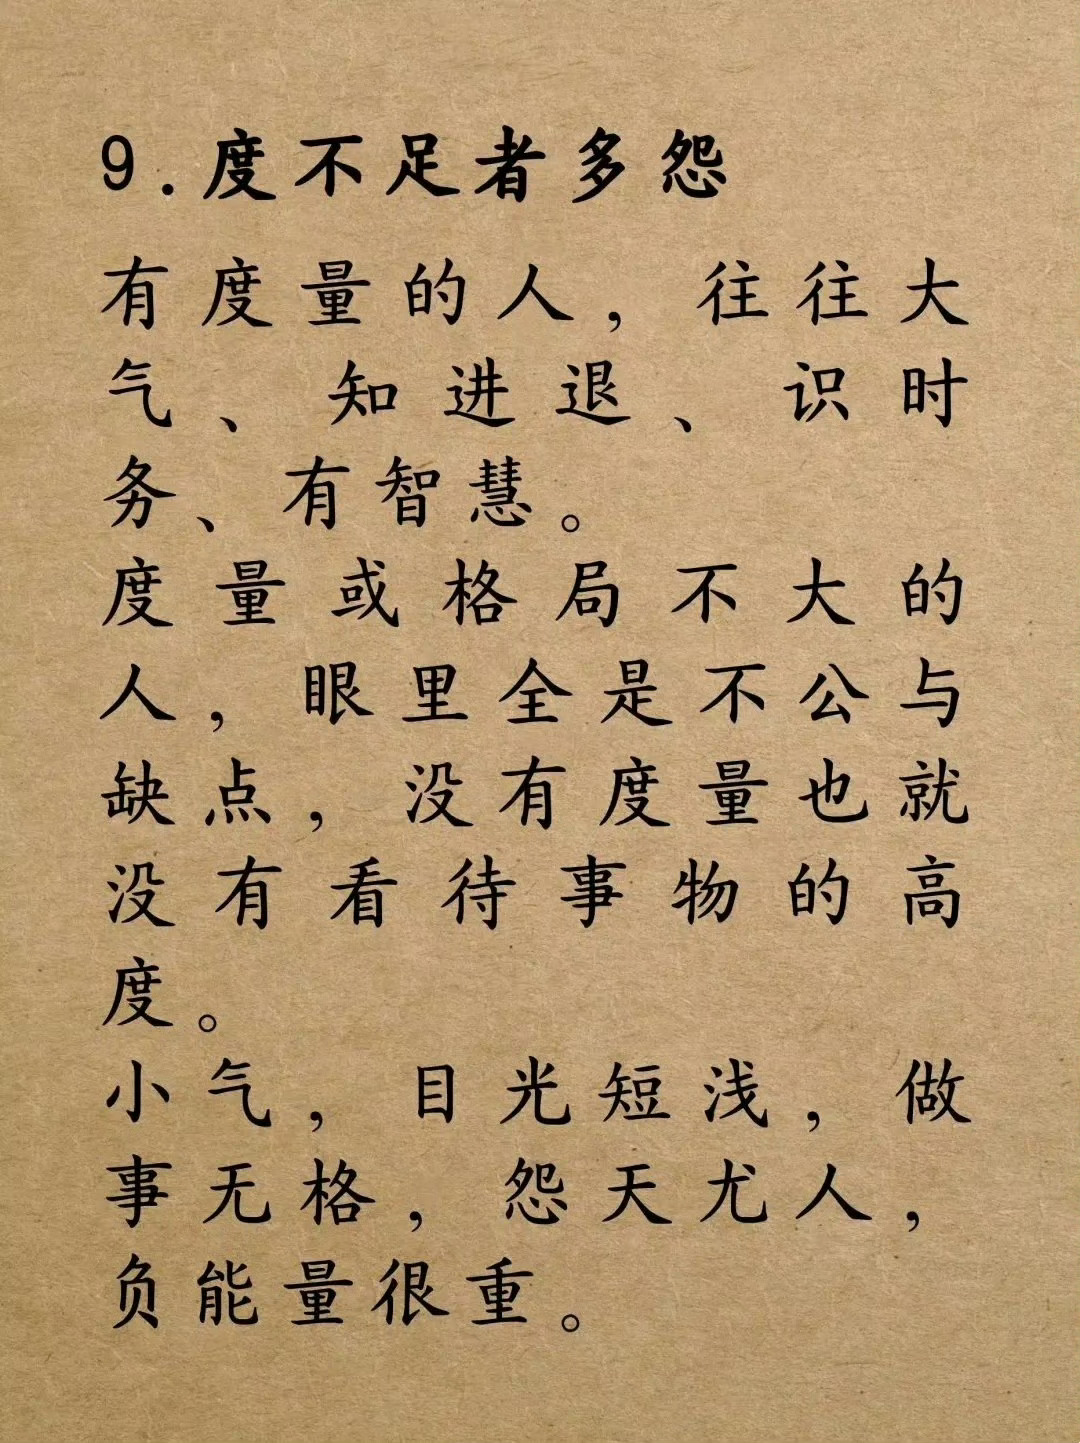 9.度不足者多怨
有度量的人，往往大
气、知进退、识时
务、有智慧。
度量或格局不大的
人，眼里全是不公与
缺点，没有度量也就
没有看待事物的高
度。
小气，目光短浅，做
事无格，怨天尤人，
负能量很重。